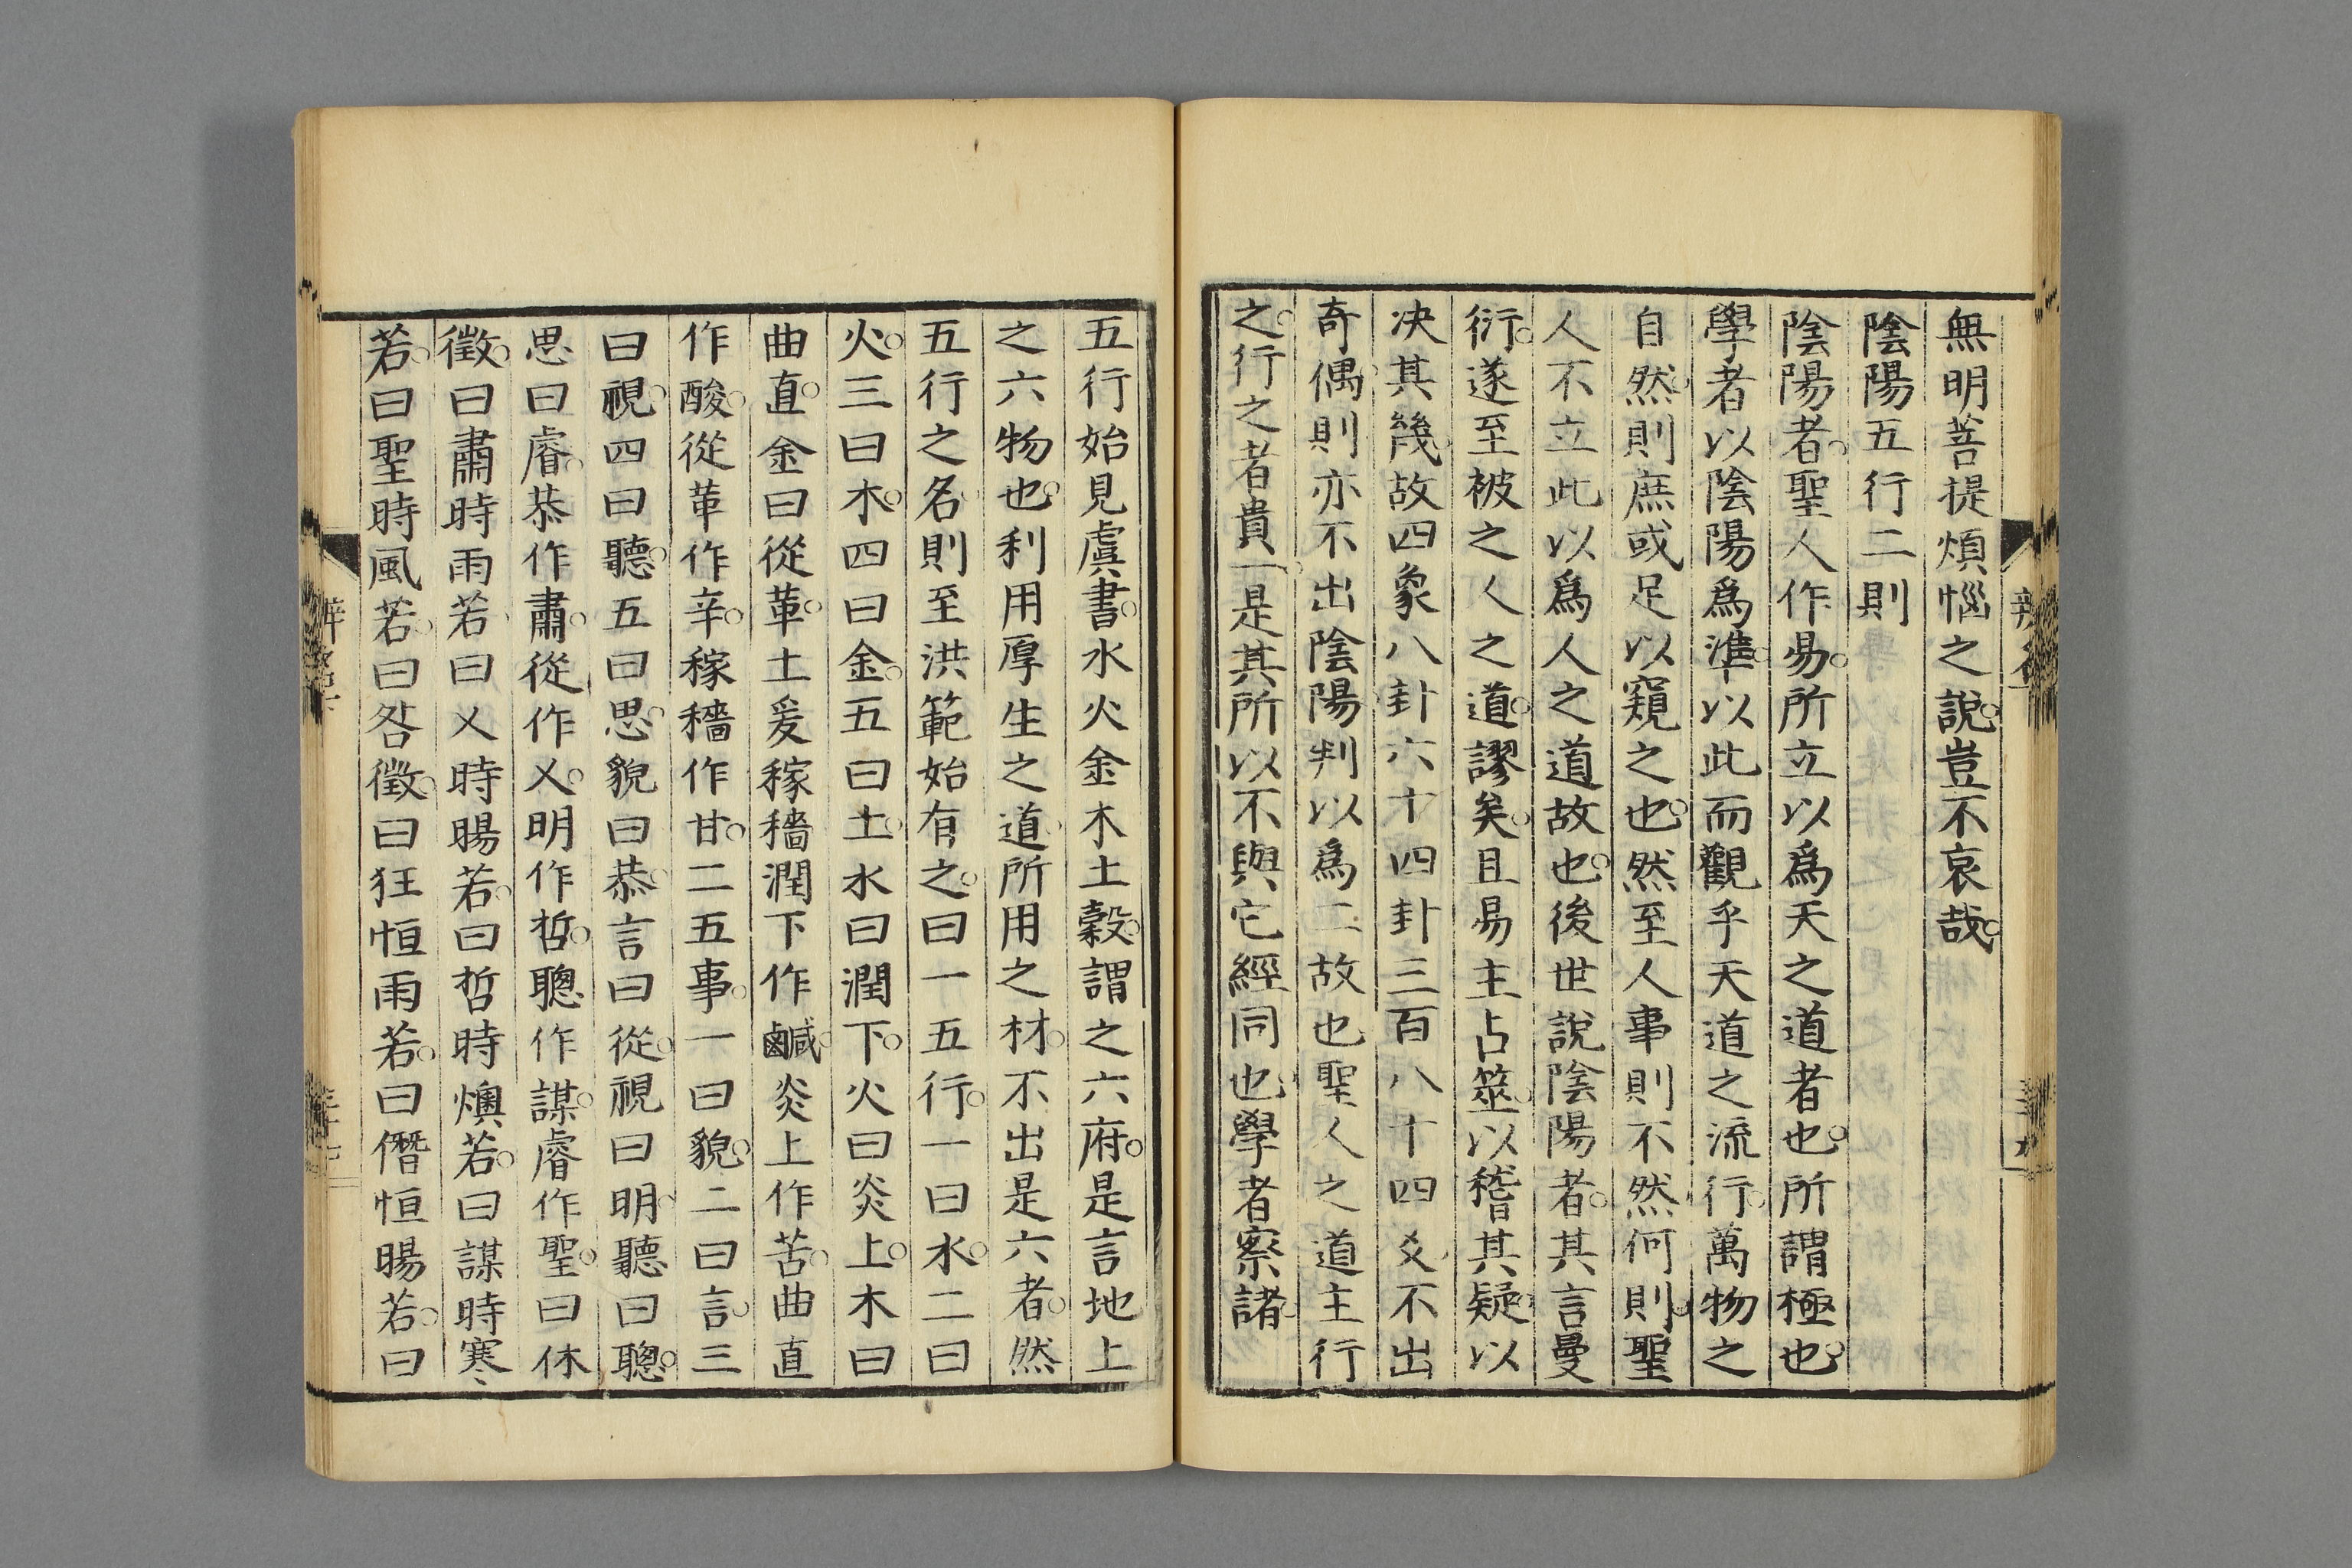 無明菩提煩惱之說豈不哀哉
陰陽五行二則
陰陽者聖人作易所立以爲天之道者也所謂極也
學者以陰陽爲準以此而觀乎天道之流行萬物之
自然則庶或足以窺之也然至人事則不然何則聖
人不立此以爲人之道故也後世說陰陽者其言曼
衍遂至被之人之道謬矣且易主占筮以稽其疑以
决其幾故四象八卦六十四卦三百八十四爻不出
奇偶則亦不出陰陽判以爲二故也聖人之道主行
之行之者貴一是其所以不與它經同也學者察諸
五行始見虞書水火金木土穀謂之六府是言地上
之六物也利用厚生之道所用之材不出是六者然
五行之名則至洪範始有之曰一五行一曰水二曰
火三曰木四曰金五曰土水曰潤下火曰炎上木曰
曲直金曰從革土爰稼穡潤下作鹹炎上作苦曲直
作酸從革作辛稼穡作甘二五事一曰貌二曰言三
曰視四曰聽五曰思貌曰恭言曰從視曰明聽曰聰
思曰睿恭作肅從作乂明作哲聰作謀睿作聖曰休
徵曰肅時雨若曰乂時暘若曰哲時燠若曰謀時寒
若曰聖時風若曰咎徵曰狂恒雨若曰僭恒暘若曰